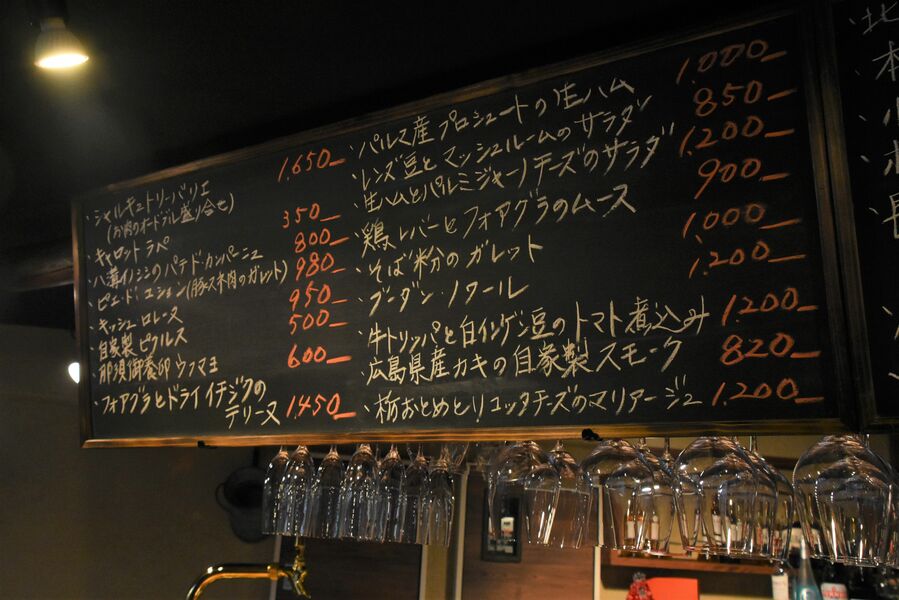 ・シャルキュトリーバリエ 1.650ー
(お肉のオードブル盛り合せ)
・キャロットラペ 350ー
・八溝イノシシのパテドカンパーニュ 800ー
・ピエ・ド・コション(豚スネ肉のガレット) 980ー
・キッシュロレーヌ 950ー
・自家製ピクルス 500ー
・那須御養卵ウフマヨ 600ー
・フォアグラとドライイチジクの
テリーヌ 1.450ー
・パルマ産プロシュートの生ハム 1.000ー
・レンズ豆とマッシュルームのサラダ 850ー
・生ハムとパルミジャーノチーズのサラダ 1.200ー
・鶏レバーとフォアグラのムース 900ー
・そば粉のガレット 1.000ー
・ブーダン・ノワール 1.200ー
・牛トリッパと白インゲン豆のトマト煮込み 1.200ー
・広島県産カキの自家製スモーク 820ー
・栃おとめとリコッタチーズのマリアージュ 1.200ー
・北